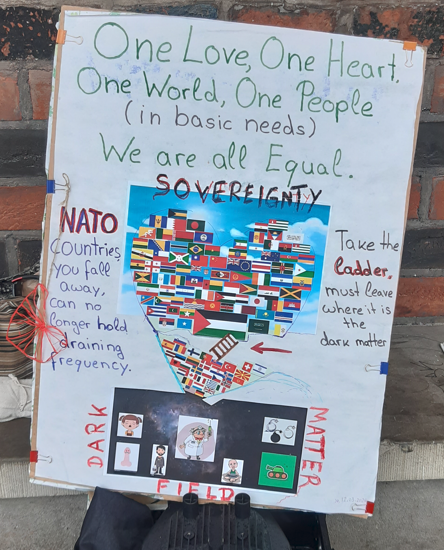 One Love, One Heart.
One World, One People
(in basic needs)
We are all Equal.
SOVEREIGNTY
NATO
Countries,
you fall
away,
can no
longer hold
draining
frequency.
Take the
ladder,
must leave
where it is
the
dark matter
DARK
MATTER
FIELD